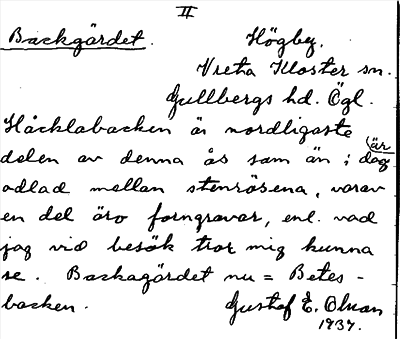 II
Backgärdet. Högby.
Vreta Kloster sn.
Gullbergs hd. Ögl.
Håcklabacken är nordligaste
delen av denna ås som än i dag är
odlad mellan stenrösena, varav
en del äro forngravar, enl. vad
jag vid besök tror mig kunna
se. Backagärdet nu = Betes-
backen. Gustaf E. Olsson
1937.